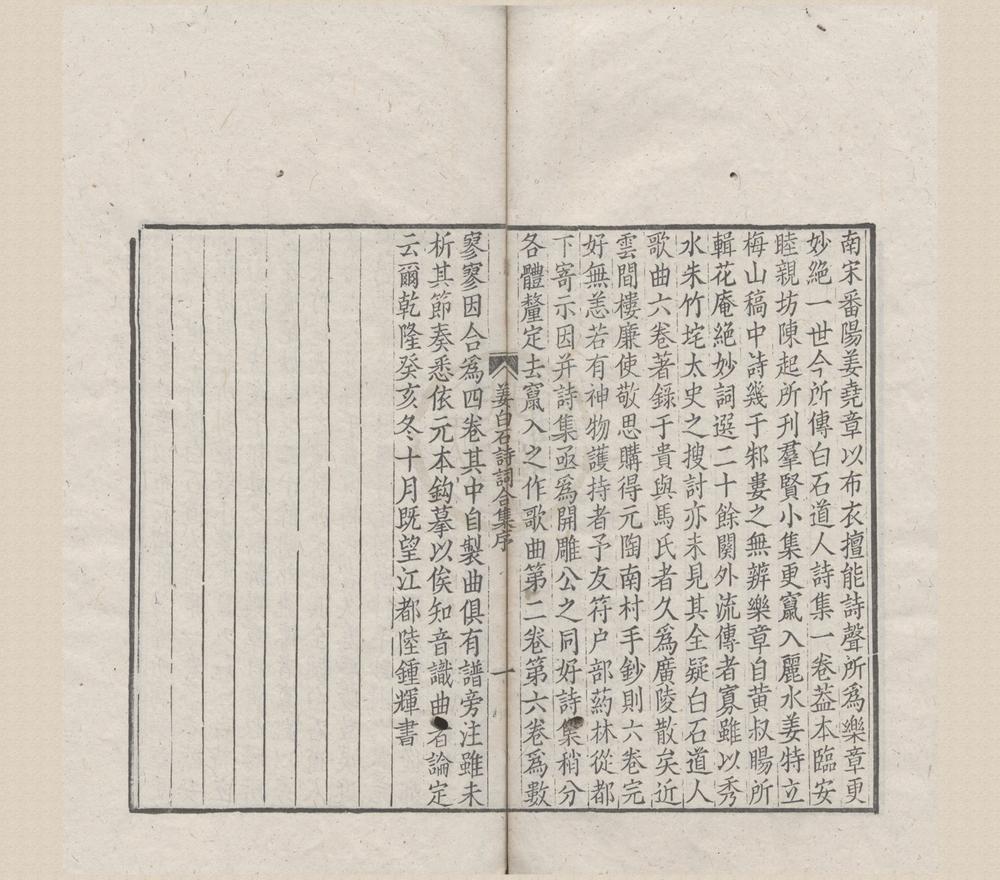 南宋番陽姜堯章以布衣擅能詩聲所爲樂章更
妙絶一世今所傳白石道人詩集一卷葢本臨安
睦親坊陳起所刊羣賢小集更竄入麗水姜特立
梅山稿中詩幾于邾婁之無辨樂章自黄叔暘所
輯花庵絶妙詞選二十餘闋外流傳者寡雖以秀
水朱竹垞太史之搜討亦未見其全疑白石道人
歌曲六卷著錄于貴與馬氏者久爲廣陵散矣近
雲間樓廉使敬思購得元陶南村手鈔則六卷完
好無恙若有神物護持者予友符户部葯林從都
下寄示因并詩集亟爲開雕公之同好詩集稍分
各體釐定去竄入之作歌曲第二卷第六卷爲數
姜白石詩詞合集序
一
寥寥因合爲四卷其中自製曲俱有譜旁注雖未
析其節奏悉依元本鈎摹以俟知音識曲者論定
云爾乾隆癸亥冬十月既望江都陸鍾輝書